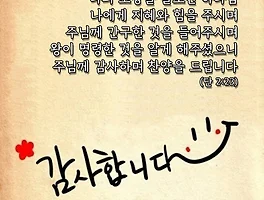 나에게 지혜와 힘을 주시며
주님께 간구한 것을 들어주시며
왕이 명령한 것을 알게 해주셨으니
주님께 감사하며 찬양을 드립니다
(단 2:23)
감사합니다